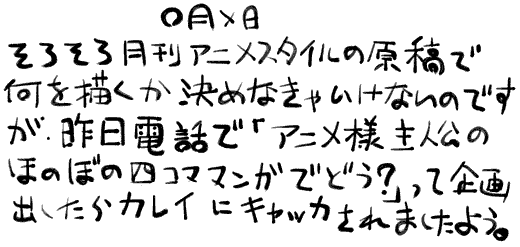 〇月×日
そろそろ月刊アニメスタイルの原稿で
何を描くか決めなきゃいけないのです
が、昨日電話で「アニメ様主人公の
ほのぼの四コママンガでどう?」って企画
出したらカレイにキャッカされましたよう。